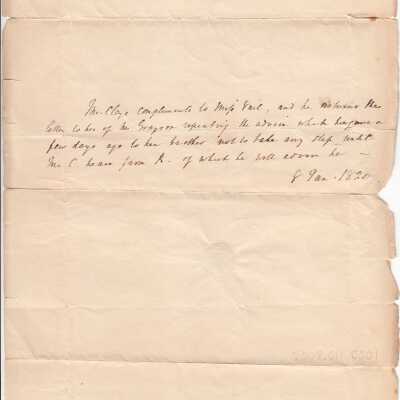 Mr Clays compliments to Miss Earl, and he returns the
letter to her of Mr Grayson repeating the advice which he gave a
few days ago to her brother not to take any step until
Mr C. hears from K. of which he will advise her —
8 Jan. 1820